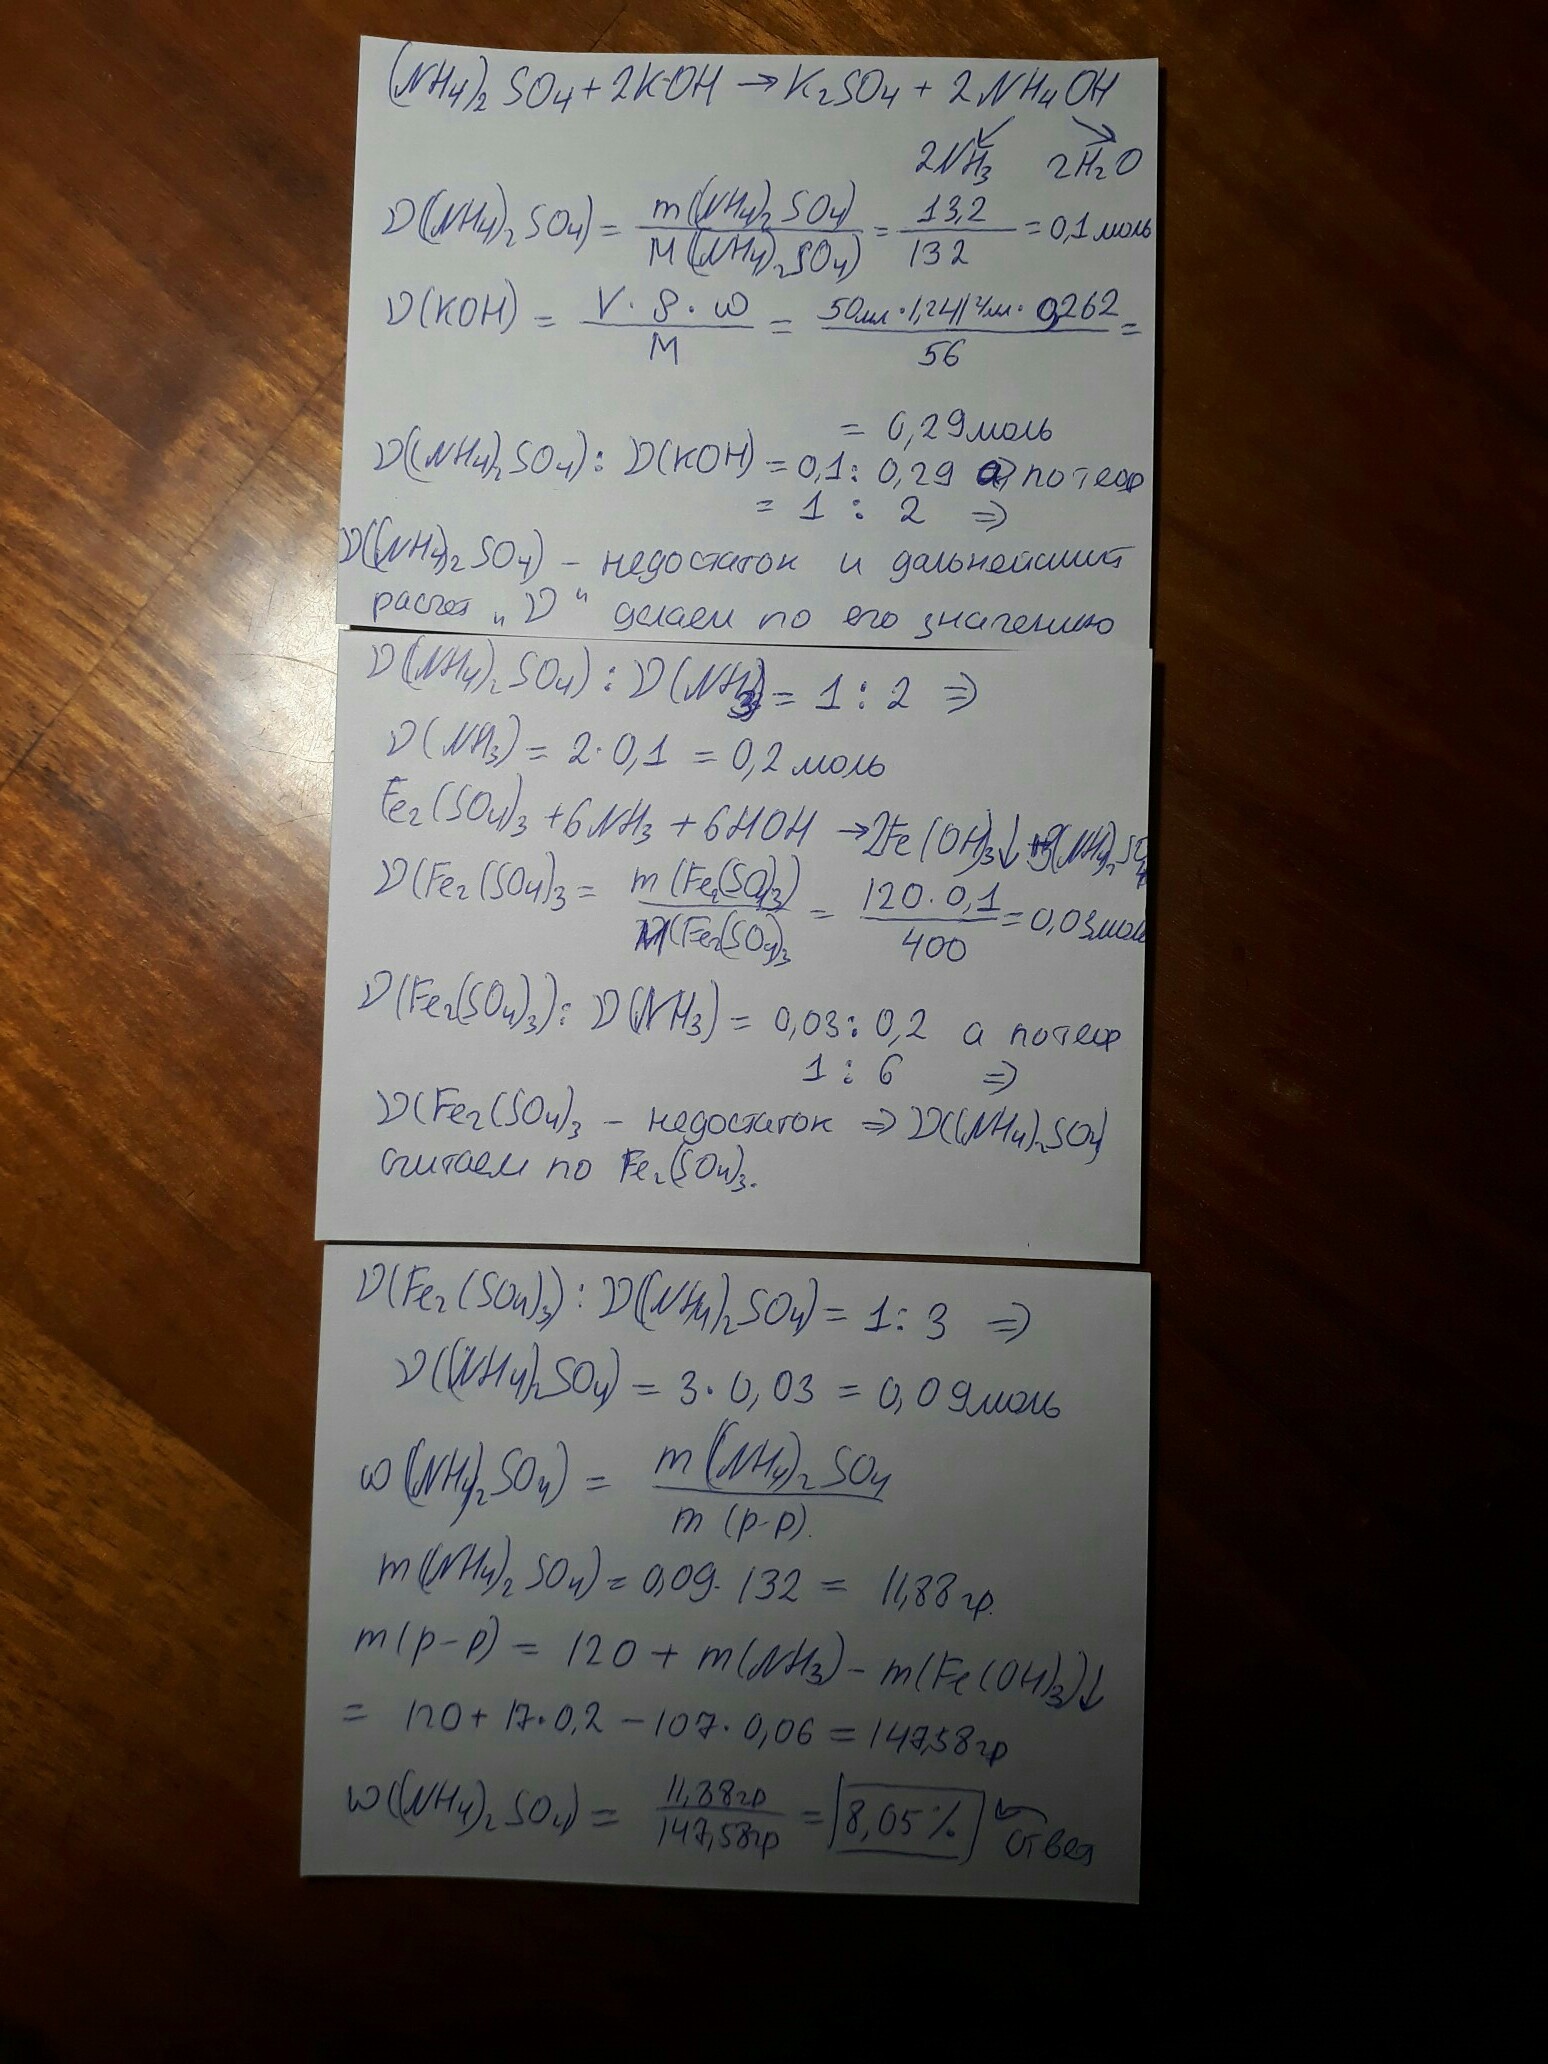 (NH₄)₂SO₄ + 2KOH → K₂SO₄ + 2NH₄OH
↙ ↘
2NH₃ 2H₂O
ν((NH₄)₂SO₄) = m((NH₄)₂SO₄) / M((NH₄)₂SO₄) = 13,2 / 132 = 0,1 моль
ν(KOH) = V·ρ·ω / M = 50мл·1,24г/мл·0,262 / 56 =
= 0,29 моль
ν((NH₄)₂SO₄) : ν(KOH) = 0,1 : 0,29 а по теор
= 1 : 2 ⇒
ν((NH₄)₂SO₄) – недостаток и дальнейший
расчет "ν" делаем по его значению
ν((NH₄)₂SO₄) : ν(NH₃) = 1 : 2 ⇒
ν(NH₃) = 2·0,1 = 0,2 моль
Fe₂(SO₄)₃ + 6NH₃ + 6HOH → 2Fe(OH)₃↓ + 3(NH₄)₂SO₄
ν(Fe₂(SO₄)₃ = m(Fe₂(SO₄)₃) / M(Fe₂(SO₄)₃ = 120·0,1 / 400 = 0,03моль
ν(Fe₂(SO₄)₃) : ν(NH₃) = 0,03 : 0,2 а по теор
1 : 6 ⇒
ν(Fe₂(SO₄)₃ – недостаток ⇒ ν((NH₄)₂SO₄)
считаем по Fe₂(SO₄)₃.
ν(Fe₂(SO₄)₃) : ν((NH₄)₂SO₄) = 1 : 3 ⇒
ν((NH₄)₂SO₄) = 3·0,03 = 0,09моль
ω(NH₄)₂SO₄) = m(NH₄)₂SO₄ / m(р-р).
m(NH₄)₂SO₄) = 0,09·132 = 11,88 гр.
m(р-р) = 120 + m(NH₃) – m(Fe(OH)₃)↓
= 120 + 17·0,2 – 107·0,06 = 147,58гр
ω((NH₄)₂SO₄) = 11,88гр / 147,58гр = 8,05% ← ответ